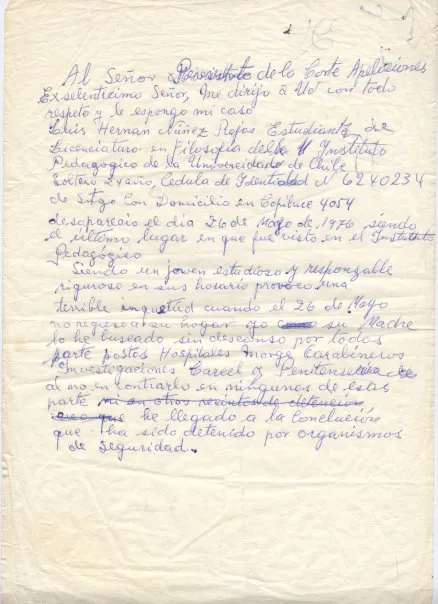 Al Señor Presidente de la Corte Apelaciones
Exselentisimo Señor, me dirijo a Ud con todo
respeto y le espongo mi caso
Luis Hernan Núñez Rojas Estudiante de
Licenciatura en Filosofia della U Instituto
Pedagogico de la Univercidad de Chile
Soltero 24 año, Cedula de Ydentidad N 6240234
de Stgo Con Domicilio en Copiluce 4054
desaparecio el dia 26 de Mayo de 1976 siendo
el último lugar en que fue visto en el Instituto
Pedagógico
Siendo un joven estudioso y responzable
riguroso en sus horario provoco una
terrible inquetud cuando el 26 de Mayo
no regreso a su hogar yo su Madre
lo he buscado sin descanso por todas
parte postas Hospitales Morge Carabineros
Investigaciones Carcel y Penitensiaria
al no encontrarlo en ningunos de esas
parte mi en otros recintos de detención
creo que he llegado a la Conclución
que ha sido detenido por organismos
de Seguridad.